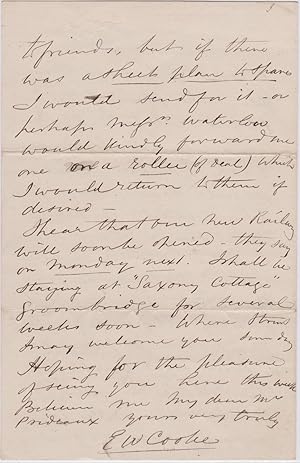 3
to friends, but if there
was a sheet plan to spare
I would send for it - or
perhaps Messrs Waterlow
would kindly forward me
one on a roller (of deal) which
I would return to them if
desired -
I hear that our new Railway
will soon be opened - they say
on Monday next. I shall be
staying at "Saxony Cottage"
Groombridge for several
weeks soon - where I trust
I may welcome you some day
Hoping for the pleasure
of seeing you here this week
Believe me my dear Mr
Prideaux yours very truly
E W Cooke